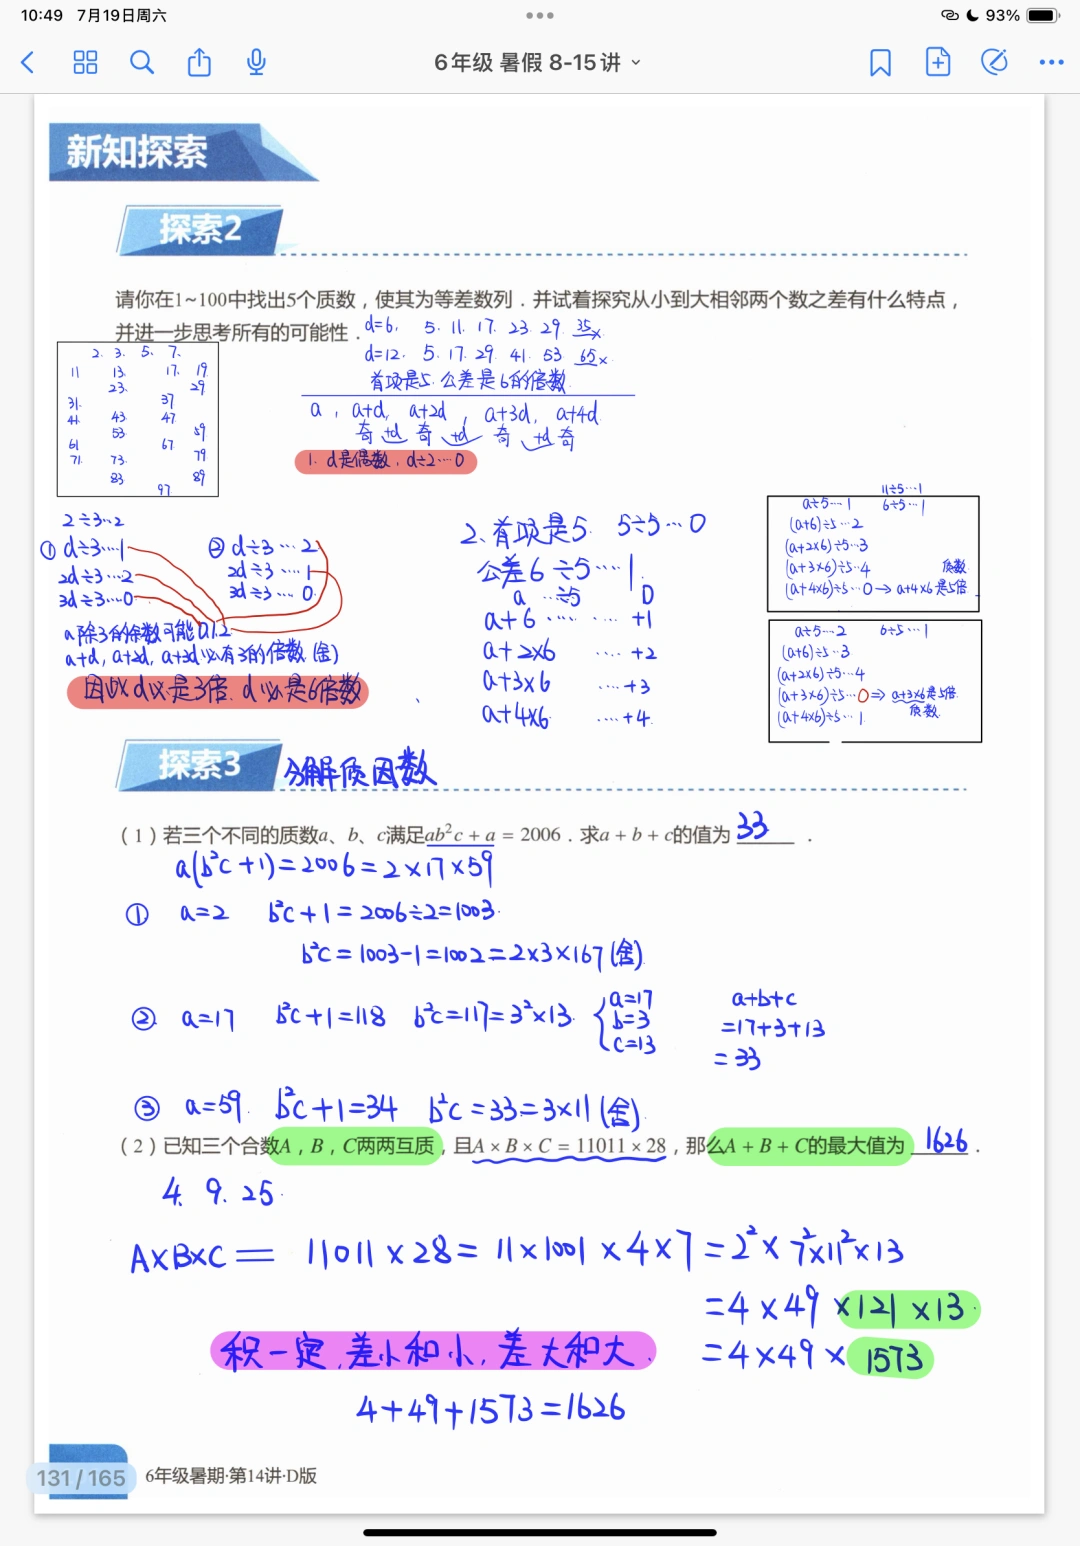 10:49 7月19日周六
93%
6年级 暑假 8-15讲
新知探索
探索2
请你在1~100中找出5个质数，使其为等差数列．并试着探究从小到大相邻两个数之差有什么特点，
并进一步思考所有的可能性．
d=6. 5. 11. 17. 23. 29. 35×
d=12. 5. 17. 29. 41. 53 65×
首项是5. 公差是6的倍数
a, a+d, a+2d, a+3d, a+4d
奇 +d 奇 +d 奇 +d 奇
1. d是偶数, d÷2…0
2. 3. 5. 7.
11 13. 17. 19
23. 29
31. 37
41. 43 47
53 59
61 67
71. 73. 79
83 89
97
2÷3…2
① d÷3…1
2d÷3…2
3d÷3…0
② d÷3…2
2d÷3…1
3d÷3…0
a除3的余数可能0.1.2
a+d, a+2d, a+3d必有3的倍数(舍)
因此d必是3倍. d必是6倍数
2、首项是5. 5÷5…0
公差6÷5…1
a …÷5 0
a+6 … … +1
a+2×6 … +2
a+3×6 … +3
a+4×6 … +4
11÷5…1
a÷5…1 6÷5…1
(a+6)÷5…2
(a+2×6)÷5…3
(a+3×6)÷5…4 质数
(a+4×6)÷5…0→a+4×6是5倍
a÷5…2 6÷5…1
(a+6)÷5…3
(a+2×6)÷5…4
(a+3×6)÷5…0⇒a+3×6是5倍
(a+4×6)÷5…1 质数
探索3 分解质因数
（1）若三个不同的质数a、b、c满足ab²c + a = 2006．求a + b + c的值为 33 ．
a(b²c+1)=2006=2×17×59
① a=2 b²c+1=2006÷2=1003.
b²c=1003-1=1002=2×3×167(舍)
② a=17 b²c+1=118 b²c=117=3²×13. { a=17
b=3
c=13
a+b+c
=17+3+13
=33
③ a=59. b²c+1=34 b²c=33=3×11(舍).
（2）已知三个合数A，B，C两两互质，且A × B × C = 11011 × 28，那么A + B + C的最大值为 1626 ．
4. 9. 25.
A×B×C = 11011×28=11×1001×4×7=2²×7²×11²×13
=4×49×121×13.
=4×49×1573
积一定,差小和小,差大和大.
4+49+1573=1626
131 / 165
6年级暑期·第14讲·D版